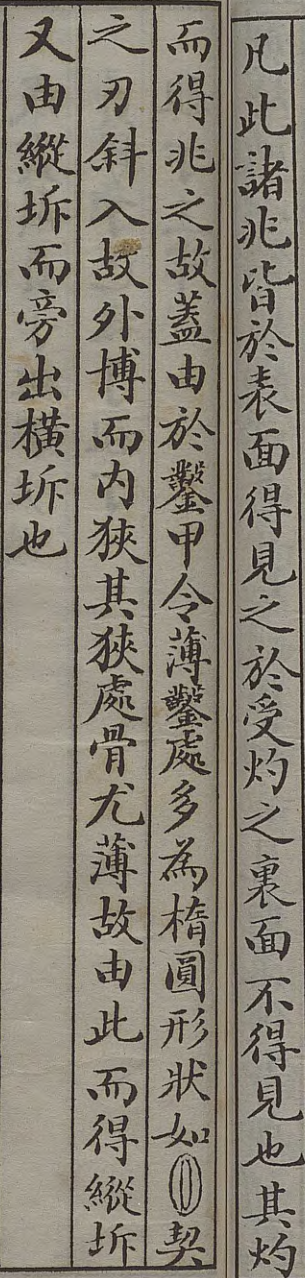 凡此諸兆皆於表面得見之於受灼之裏面不得見也其灼
而得兆之故蓋由於鑿甲令薄鑿處多為楕圓形狀如契
之刃斜入故外博而内狹其狹處骨尤薄故由此而得縱坼
又由縱坼而旁出橫坼也